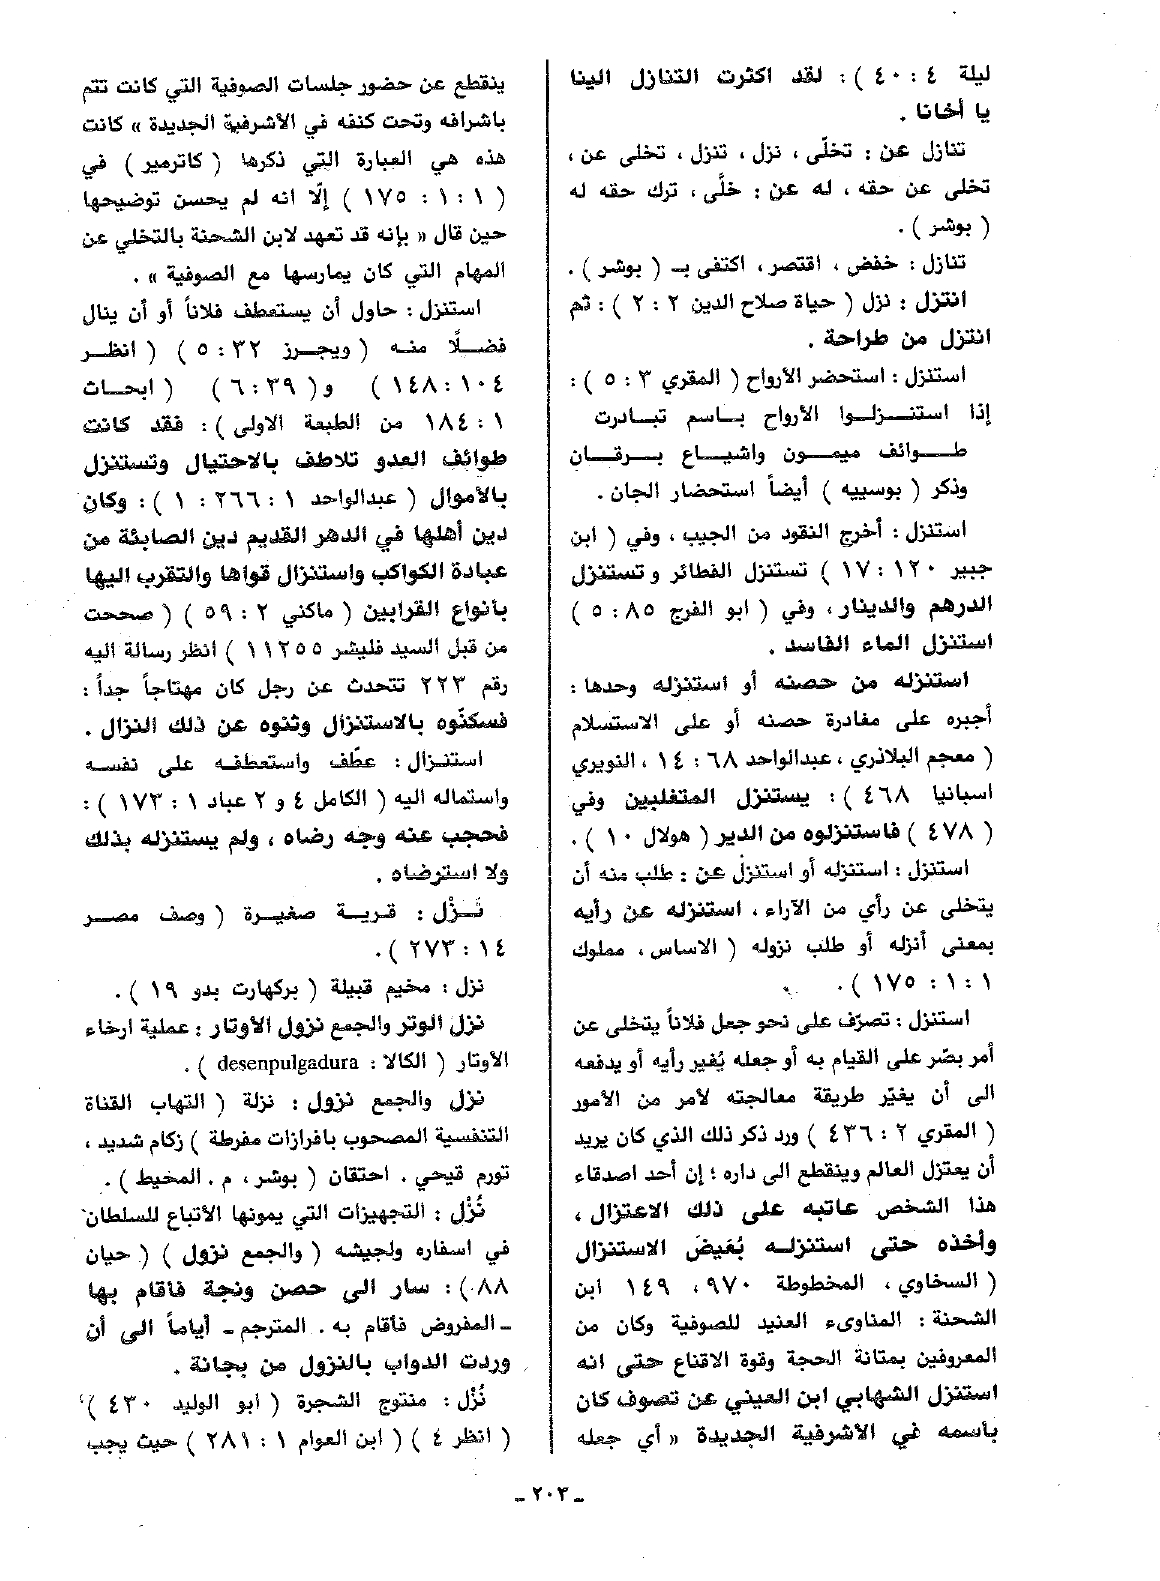 ليلة ٤ : ٤٠ ) : لقد اكثرت التنازل الينا
يا أخانا .
تنازل عن : تخلّى ، نزل ، تنزل ، تخلى عن ،
تخلى عن حقه ، له عن : خلّى ، ترك حقه له
( بوشر ) .
تنازل : خفض ، اقتصر ، اكتفى بـ ( بوشر ) .
انتزل : نزل ( حياة صلاح الدين ٢ : ٢ ) : ثم
انتزل من طراحة .
استنزل : استحضر الأرواح ( المقري ٣ : ٥ ) :
إذا استنزلوا الأرواح باسم تبادرت
طوائف ميمون واشياع برقان
وذكر ( بوسييه ) أيضاً استحضار الجان .
استنزل : أخرج النقود من الجيب ، وفي ( ابن
جبير ١٢٠ : ١٧ ) تستنزل الفطائر وتستنزل
الدرهم والدينار ، وفي ( ابو الفرج ٨٥ : ٥ )
استنزل الماء الفاسد .
استنزله من حصنه أو استنزله وحدها :
أجبره على مغادرة حصنه أو على الاستسلام
( معجم البلاذري ، عبدالواحد ٦٨ : ١٤ ، النويري
اسبانيا ٤٦٨ ) : يستنزل المتغلبين وفي
( ٤٧٨ ) فاستنزلوه من الدير ( هولال ١٠ ) .
استنزل : استنزله أو استنزل عن : طلب منه أن
يتخلى عن رأي من الآراء ، استنزله عن رأيه
بمعنى أنزله أو طلب نزوله ( الاساس ، مملوك
١ : ١ : ١٧٥ ) .
استنزل : تصرّف على نحو جعل فلاناً يتخلى عن
أمر بصّر على القيام به أو جعله يُغير رأيه أو يدفعه
الى أن يغيّر طريقة معالجته لأمر من الأمور
( المقري ٢ : ٤٣٦ ) ورد ذكر ذلك الذي كان يريد
أن يعتزل العالم وينقطع الى داره ؛ إن أحد اصدقاء
هذا الشخص عاتبه على ذلك الاعتزال ،
وأخذه حتى استنزله بُعَيضَ الاستنزال
( السخاوي ، المخطوطة ٩٧٠ ، ١٤٩ ابن
الشحنة : المناوىء العنيد للصوفية وكان من
المعروفين بمتانة الحجة وقوة الاقناع حتى انه
استنزل الشهابي ابن العيني عن تصوف كان
باسمه في الاشرفية الجديدة « أي جعله
ينقطع عن حضور جلسات الصوفية التي كانت تتم
باشرافه وتحت كنفه في الأشرفية الجديدة » كانت
هذه هي العبارة التي ذكرها ( كاترمير ) في
( ١ : ١ : ١٧٥ ) إلّا انه لم يحسن توضيحها
حين قال « بإنه قد تعهد لابن الشحنة بالتخلي عن
المهام التي كان يمارسها مع الصوفية » .
استنزل : حاول أن يستعطف فلاناً أو أن ينال
فضلًا منه ( ويجرز ٣٢ : ٥ ) ( انظر
١٠٤ : ١٤٨ ) و( ٣٩ : ٦ ) ( ابحاث
١ : ١٨٤ من الطبعة الاولى ) : فقد كانت
طوائف العدو تلاطف بالاحتيال وتستنزل
بالأموال ( عبدالواحد ١ : ٢٦٦ : ١ ) : وكان
دين أهلها في الدهر القديم دين الصابئة من
عبادة الكواكب واستنزال قواها والتقرب اليها
بأنواع القرابين ( ماكني ٢ : ٥٩ ) ( صححت
من قبل السيد فليشر ١١٢٥٥ ) انظر رسالة اليه
رقم ٢٢٣ تتحدث عن رجل كان مهتاجاً جداً :
فسكنّوه بالاستنزال وثنوه عن ذلك النزال .
استنزال : عطّف واستعطفه على نفسه
واستماله اليه ( الكامل ٤ و ٢ عباد ١ : ١٧٣ ) :
فحجب عنه وجه رضاه ، ولم يستنزله بذلك
ولا استرضاه .
نَزْل : قرية صغيرة ( وصف مصر
١٤ : ٢٧٣ ) .
نزل : مخيم قبيلة ( بركهارت بدو ١٩ ) .
نزل الوتر والجمع نزول الأوتار : عملية ارخاء
الأوتار ( الكالا : desenpulgadura ) .
نزل والجمع نزول : نزلة ( التهاب القناة
التنفسية المصحوب بافرازات مفرطة ) زكام شديد ،
تورم قيحي . احتقان ( بوشر ، م . المحيط ) .
نُزْل : التجهيزات التي يمونها الأتباع للسلطان
في اسفاره ولجيشه ( والجمع نزول ) ( حيان
٨٨ ) : سار الى حصن ونجة فاقام بها
ـ المفروض فأقام به . المترجم ـ أياماً الى أن
وردت الدواب بالنزول من بجانة .
نُزْل : منتوج الشجرة ( ابو الوليد ٤٣٠ )
( انظر ٤ ) ( ابن العوام ١ : ٢٨١ ) حيث يجب
ـ ٢٠٣ ـ